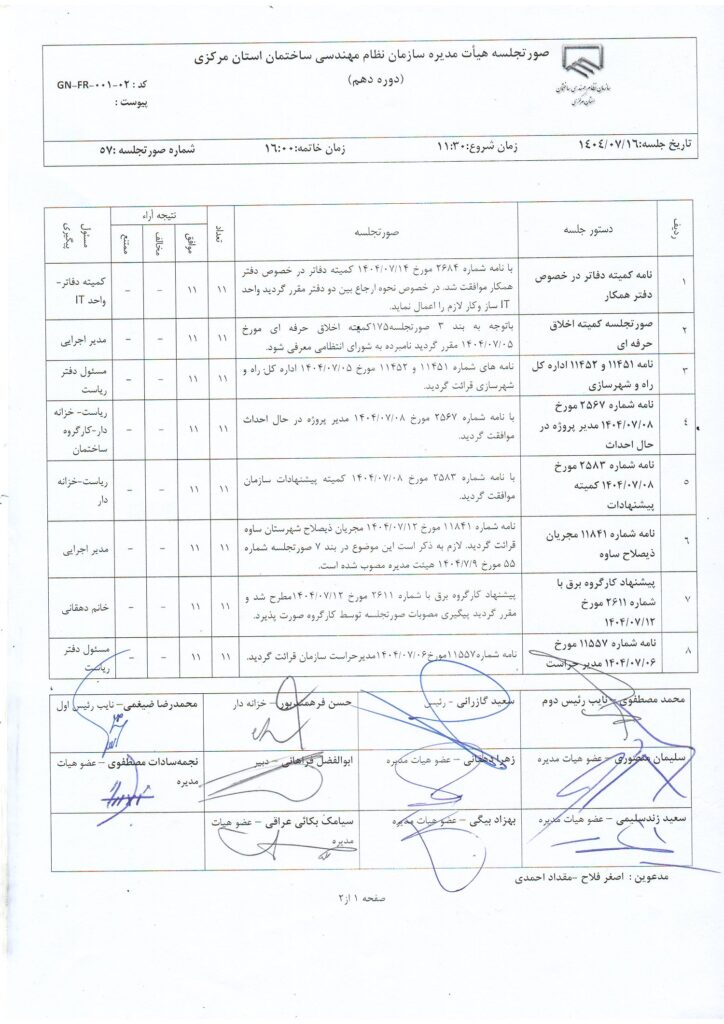 صورتجلسه هیأت مدیره سازمان نظام مهندسی ساختمان استان مرکزی
(دوره دهم)
سازمان نظام مهندسی ساختمان
استان مرکزی
کد : GN-FR-۰۰۱-۰۲
پیوست :
تاریخ جلسه:۱۴۰۴/۰۷/۱۶ زمان شروع:۱۱:۳۰ زمان خاتمه:۱۶:۰۰ شماره صورتجلسه :۵۷
ردیف دستور جلسه صورتجلسه تعداد نتیجه آراء مسئول پیگیری
موافق مخالف ممتنع
۱ نامه کمیته دفاتر در خصوص
دفتر همکار
با نامه شماره ۲۶۸۴ مورخ ۱۴۰۴/۰۷/۱۴ کمیته دفاتر در خصوص دفتر
همکار موافقت شد. در خصوص نحوه ارجاع بین دو دفتر مقرر گردید واحد
IT ساز وکار لازم را اعمال نماید.
۱۱ ۱۱ – –
کمیته دفاتر-
واحد IT
۲ صورتجلسه کمیته اخلاق
حرفه ای
باتوجه به بند ۳ صورتجلسه۱۷۵کمیته اخلاق حرفه ای مورخ
۱۴۰۴/۰۷/۰۵ مقرر گردید نامبرده به شورای انتظامی معرفی شود.
۱۱ ۱۱ – –
مدیر اجرایی
۳ نامه ۱۱۴۵۱ و ۱۱۴۵۲ اداره کل
راه و شهرسازی
نامه های شماره ۱۱۴۵۱ و ۱۱۴۵۲ مورخ ۱۴۰۴/۰۷/۰۵ اداره کل راه و
شهرسازی قرائت گردید.
۱۱ ۱۱ – –
مسئول دفتر
ریاست
۴ نامه شماره ۲۵۶۷ مورخ
۱۴۰۴/۰۷/۰۸ مدیر پروژه در
حال احداث
با نامه شماره ۲۵۶۷ مورخ ۱۴۰۴/۰۷/۰۸ مدیر پروژه در حال احداث
موافقت گردید.
۱۱ ۱۱ – –
ریاست- خزانه
دار-کارگروه
ساختمان
۵ نامه شماره ۲۵۸۳ مورخ
۱۴۰۴/۰۷/۰۸ کمیته
پیشنهادات
با نامه شماره ۲۵۸۳ مورخ ۱۴۰۴/۰۷/۰۸ کمیته پیشنهادات سازمان
موافقت گردید.
۱۱ ۱۱ – –
ریاست-خزانه
دار
۶ نامه شماره ۱۱۸۴۱ مجریان
ذیصلاح ساوه
نامه شماره ۱۱۸۴۱ مورخ ۱۴۰۴/۰۷/۱۲ مجریان ذیصلاح شهرستان ساوه
قرائت گردید. لازم به ذکر است این موضوع در بند ۷ صورتجلسه شماره
۵۵ مورخ ۱۴۰۴/۷/۹ هیئت مدیره مصوب شده است.
۱۱ ۱۱ – –
مدیر اجرایی
۷ پیشنهاد کارگروه برق با
شماره ۲۶۱۱ مورخ
۱۴۰۴/۰۷/۱۲
پیشنهاد کارگروه برق با شماره ۲۶۱۱ مورخ ۱۴۰۴/۰۷/۱۲مطرح شد و
مقرر گردید پیگیری مصوبات صورتجلسه توسط کارگروه صورت پذیرد.
۱۱ ۱۱ – –
خانم دهقانی
۸ نامه شماره ۱۱۵۵۷ مورخ
۱۴۰۴/۰۷/۰۶ مدیر حراست
نامه شماره۱۱۵۵۷مورخ۱۴۰۴/۰۷/۰۶مدیرحراست سازمان قرائت گردید.
۱۱ ۱۱ – –
مسئول دفتر
ریاست
محمد مصطفوی – نایب رئیس دوم سعید گازرانی - رئیس حسن فرهمندپور - خزانه دار محمدرضا ضیغمی – نایب رئیس اول
سلیمان منصوری – عضو هیات مدیره زهرا دهقانی – عضو هیات مدیره ابوالفضل فراهانی - دبیر نجمه‌سادات مصطفوی – عضو هیات
مدیره
سعید زندسلیمی – عضو هیات مدیره بهزاد بیگی – عضو هیات مدیره سیامک بکائی عراقی – عضو هیات
مدیره
مدعوین : اصغر فلاح –مقداد احمدی
صفحه ۱ از۲